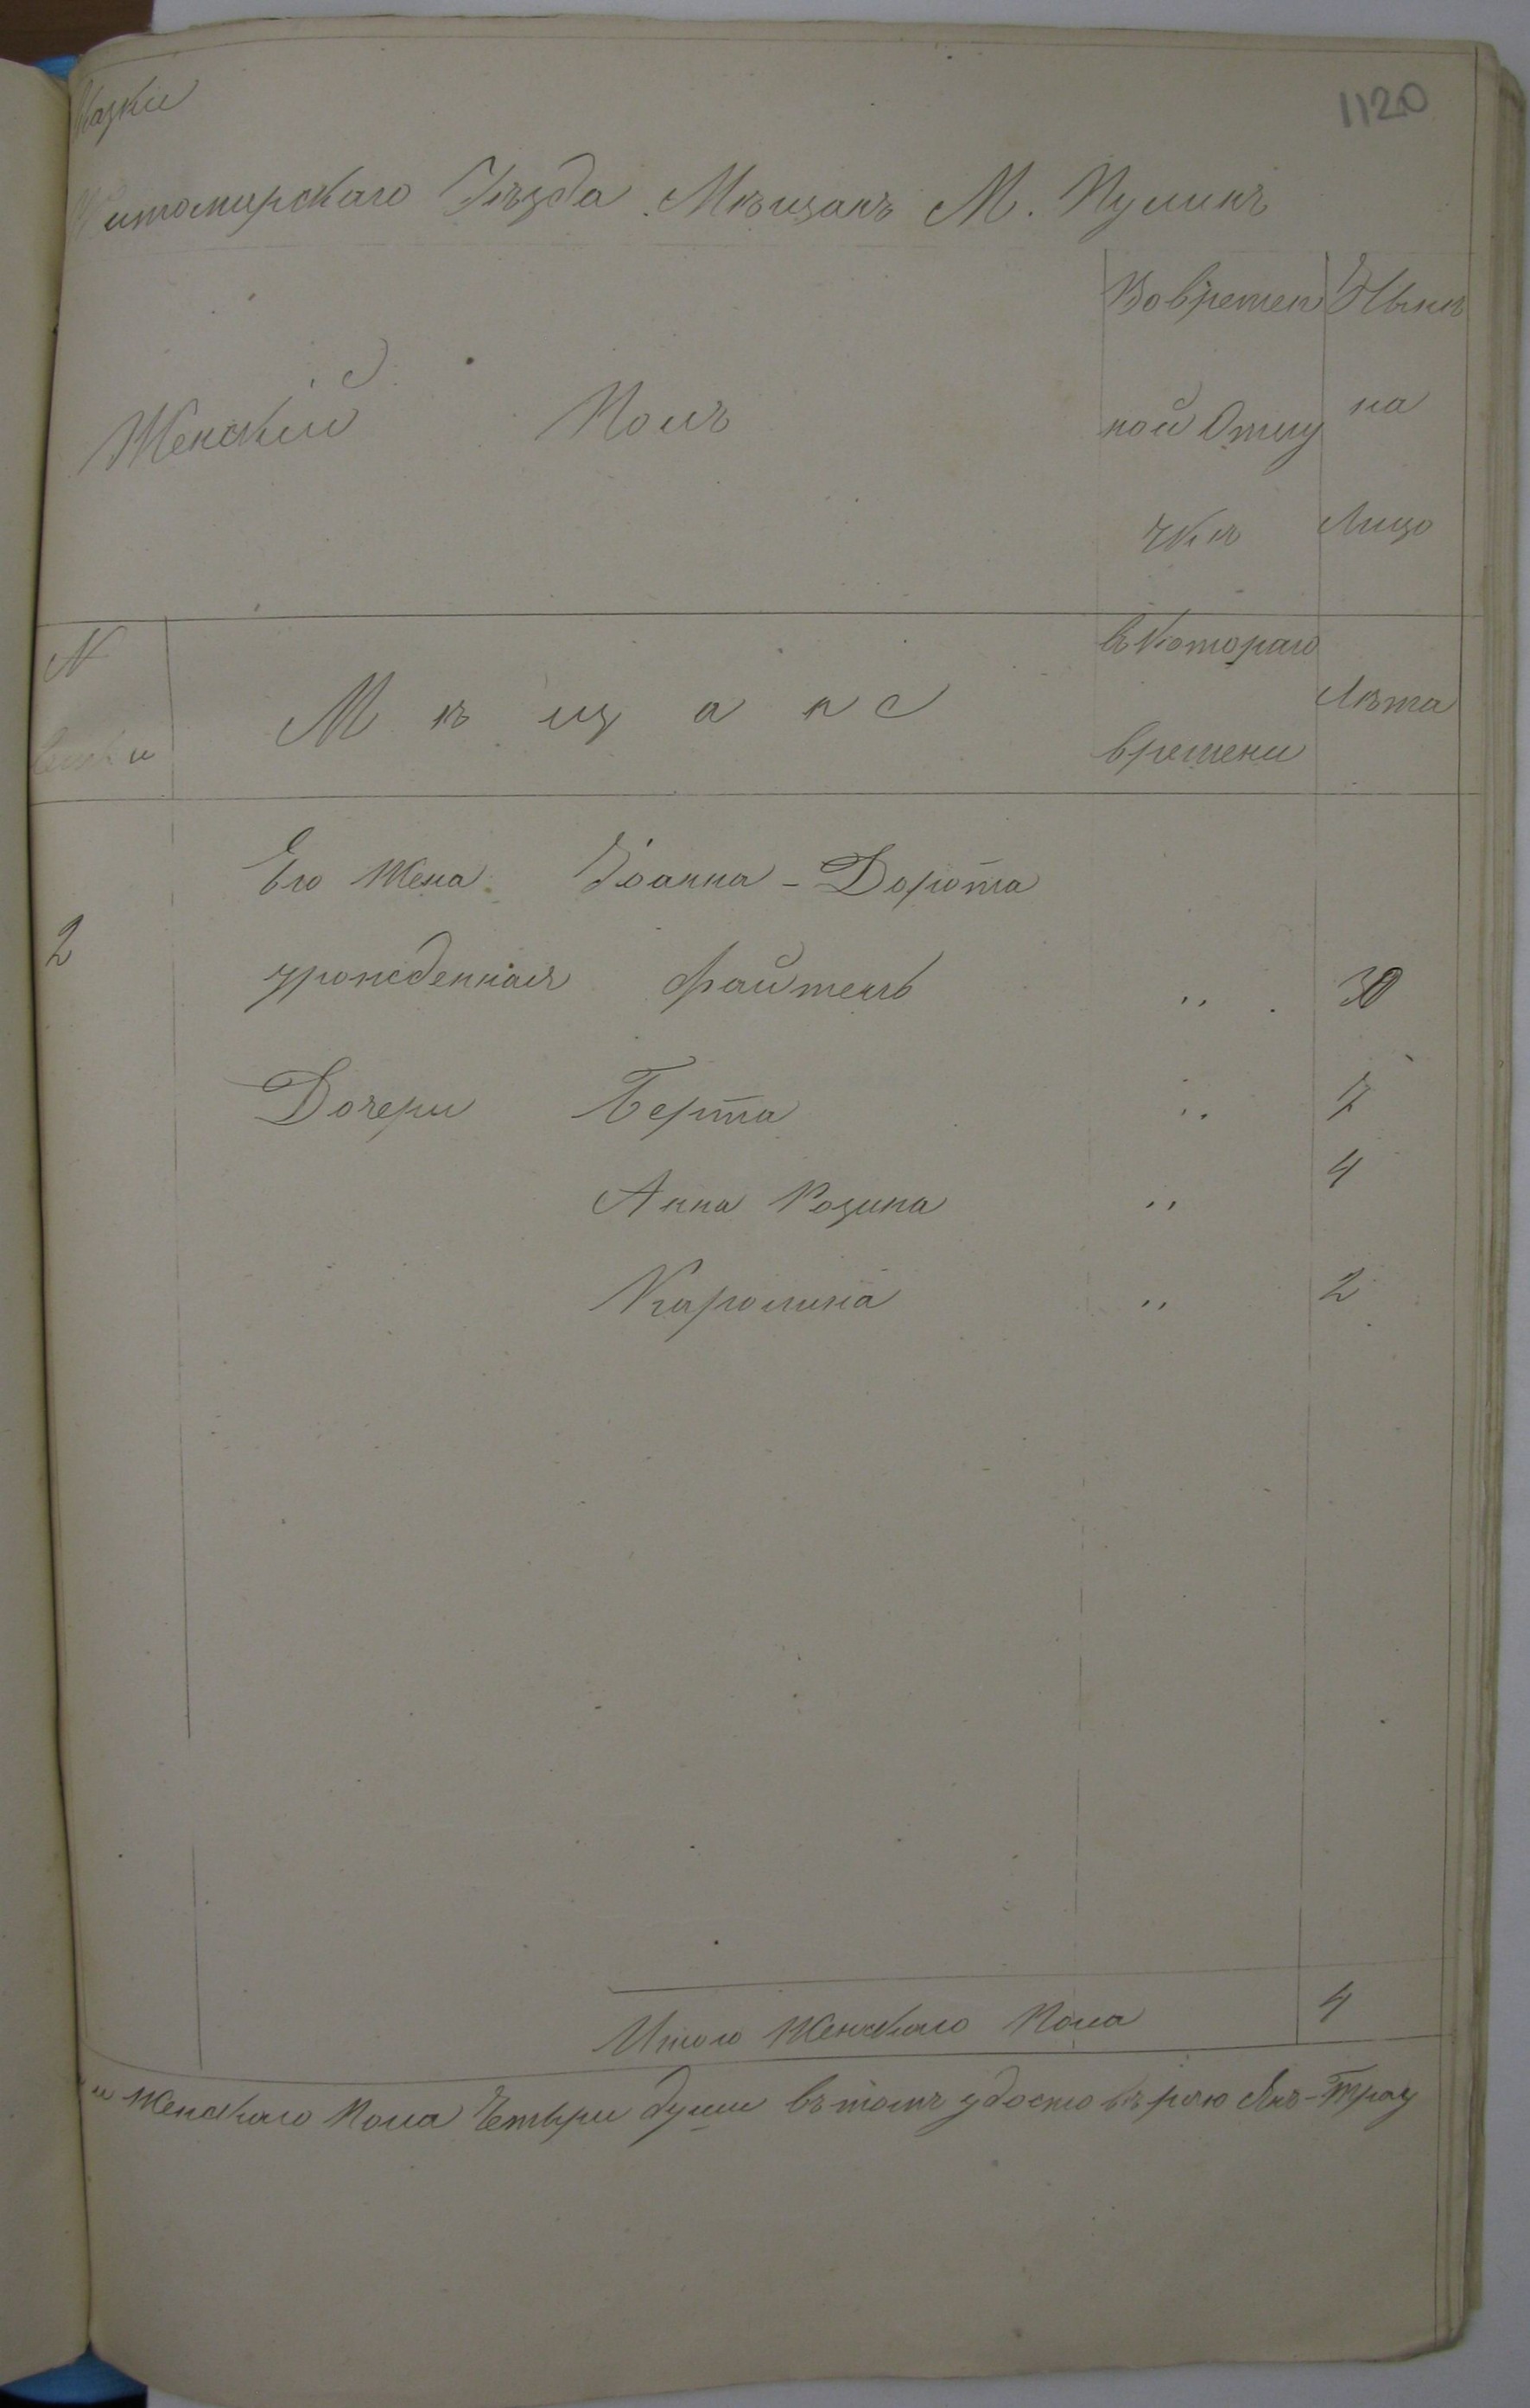 1120
сказки
Житомирскаго Уѣзда Мѣщанъ М. Пулинъ
Женскій Полъ
Во времен
ной Отлу
чкѣ
Нынѣ
на
Лицо
N
семьи
Мѣщане
съ котораго
времени
Лѣта
Его жена Іоанна-Дорота
2
урожденная Файтель " 30
Дочери Берта " 7
Анна Розина " 4
Каролина " 2
Итого Женскаго Пола 4
и Женскаго Пола Четыри души въ томъ удостовѣряю